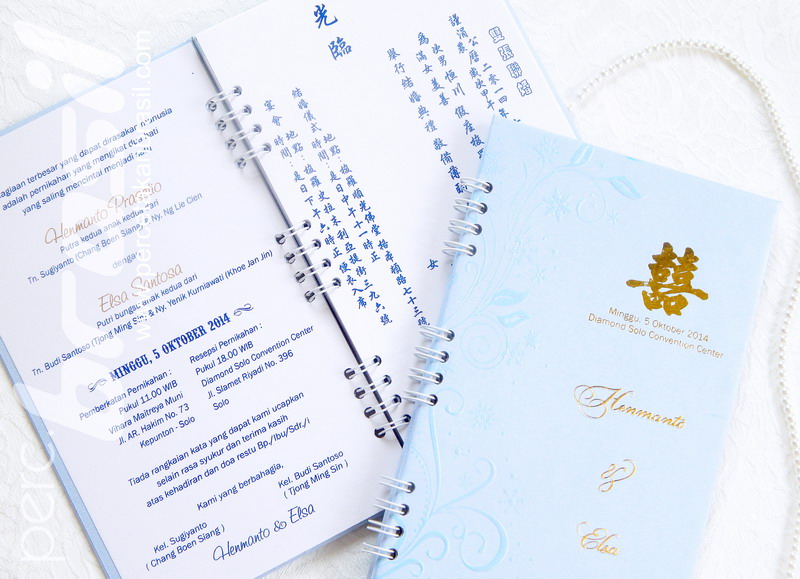 ...agiaan terbesar yang dapat dirasakan manusia
adalah pernikahan yang mengikat dua hati
yang saling mencintai menjadi satu
Henmanto Prasetio
Putra kedua anak kedua dari
Tn. Sugiyanto (Chang Boen Siang) & Ny. Ng Lie Cien
dengan
Elsa Santosa
Putri bungsu anak kedua dari
Tn. Budi Santoso (Tjong Ming Sin) & Ny. Yenik Kurniawati (Khoe Jan Jin)
MINGGU, 5 OKTOBER 2014
Pemberkatan Pernikahan :
Pukul 11.00 WIB
Vihara Maitreya Muni
Jl. AR. Hakim No. 73
Kepunton - Solo
Resepsi Pernikahan :
Pukul 18.00 WIB
Diamond Solo Convention Center
Jl. Slamet Riyadi No. 396
Solo
Tiada rangkaian kata yang dapat kami ucapkan
selain rasa syukur dan terima kasih
atas kehadiran dan doa restu Bp./Ibu/Sdr./i
Kami yang berbahagia,
Kel. Sugiyanto
( Chang Boen Siang )
Kel. Budi Santoso
( Tjong Ming Sin )
Henmanto & Elsa
謹消農公曆
二零一四年
歲次甲午
次男恒川
為滿女美善
假座梭
舉行結婚典禮敬備薄
女
光臨
結婚儀式時間：是日中午十一時正
地點：梭羅順光佛堂
七十三號
宴會時間：是日下午六時正便裝入席
三九六號
囍
Minggu, 5 Oktober 2014
Diamond Solo Convention Center
Henmanto
&
Elsa